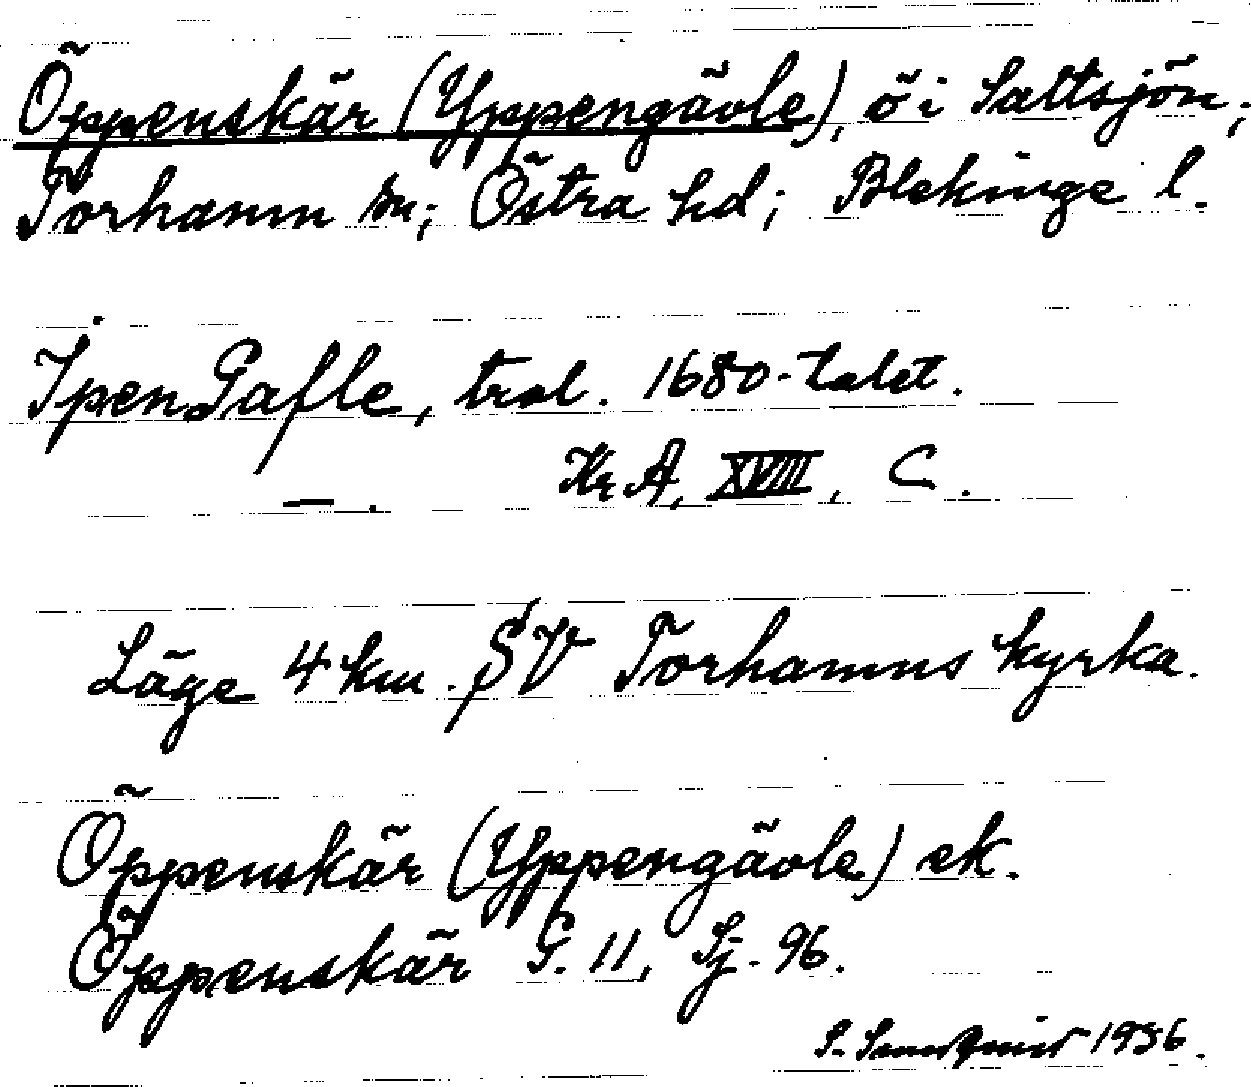 Öppenskär (Yppengävle), ö i Saltsjön;
Torhamn sn; Östra hd; Blekinge l.
Ipen Gafle, trol. 1680-talet.
—. KrA, XVIII, C.
Läge 4 km. SV Torhamns kyrka.
Öppenskär (Yppengävle) ek.
Öppenskär G. 11, Sj. 96.
S. 1936.